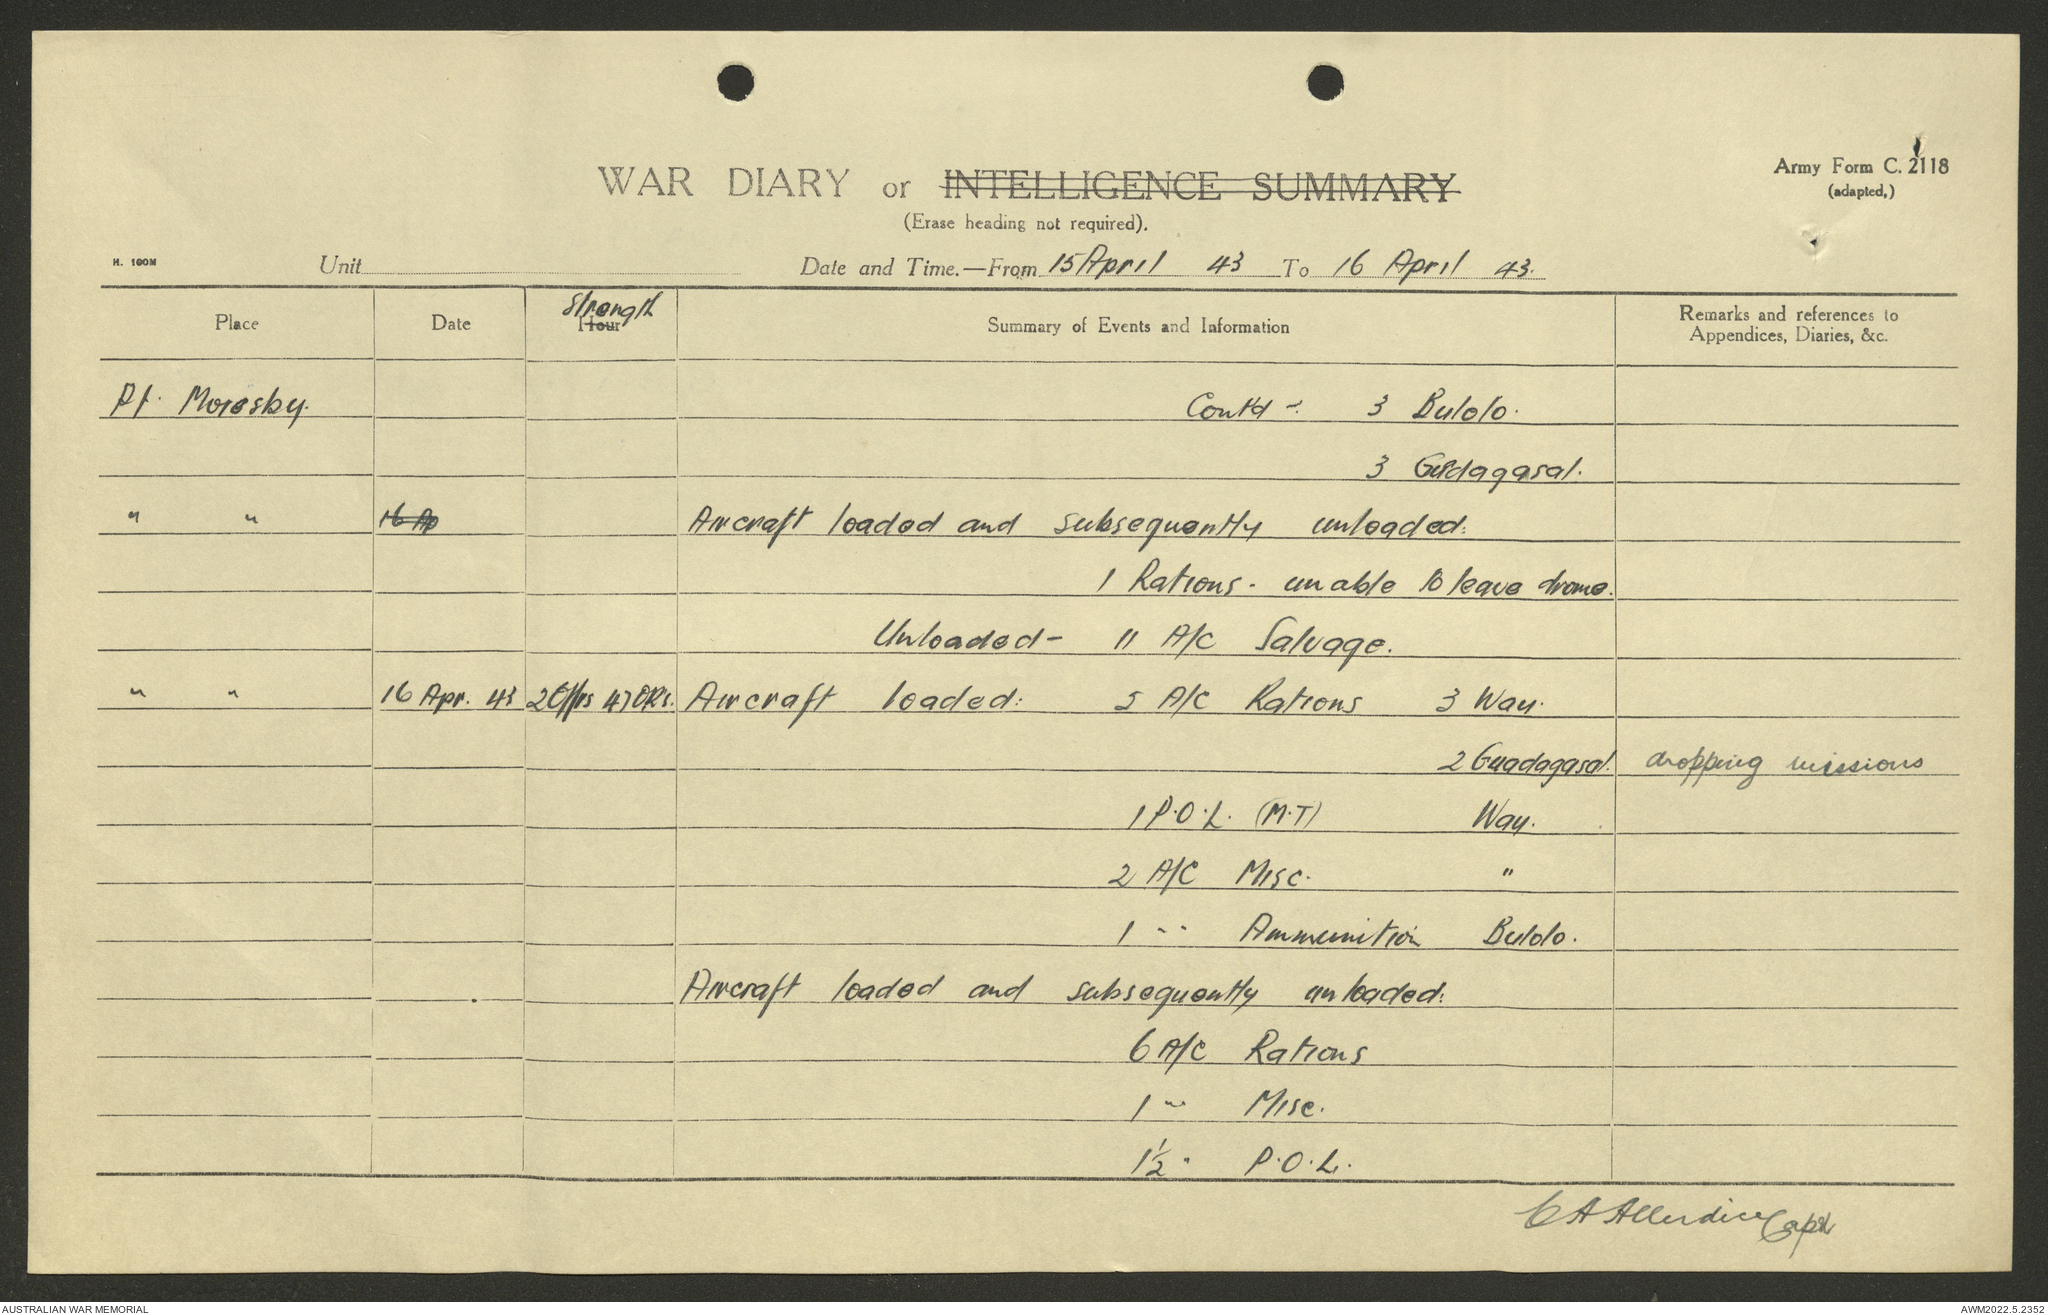 WAR DIARY or INTELLIGENCE SUMMARY
(Erase heading not required).
Army Form C. 2118
(adapted,)
H. 100M
Unit
Date and Time.—From 15 April 43 To 16 April 43.
Place Date Hour Strength Summary of Events and Information Remarks and references to Appendices, Diaries, &c.
Pt. Moresby. Contd - 3 Bulolo.
3 Guadagasal.
" " 16 Ap Aircraft loaded and subsequently unloaded:
1 Rations - unable to leave drome.
Unloaded - 11 A/C Salvage.
" " 16 Apr. 43 2 Offrs 47 ORs. Aircraft loaded: 5 A/C Rations 3 Wau.
2 Guadagasal. dropping missions
1 P.O.L. (M.T) Wau.
2 A/C Misc. "
1 " Ammunition Bulolo.
Aircraft loaded and subsequently unloaded:
6 A/C Rations
1 " Misc.
1½ " P.O.L.
C A Allerdice Capt
AUSTRALIAN WAR MEMORIAL
AWM2022.5.2352